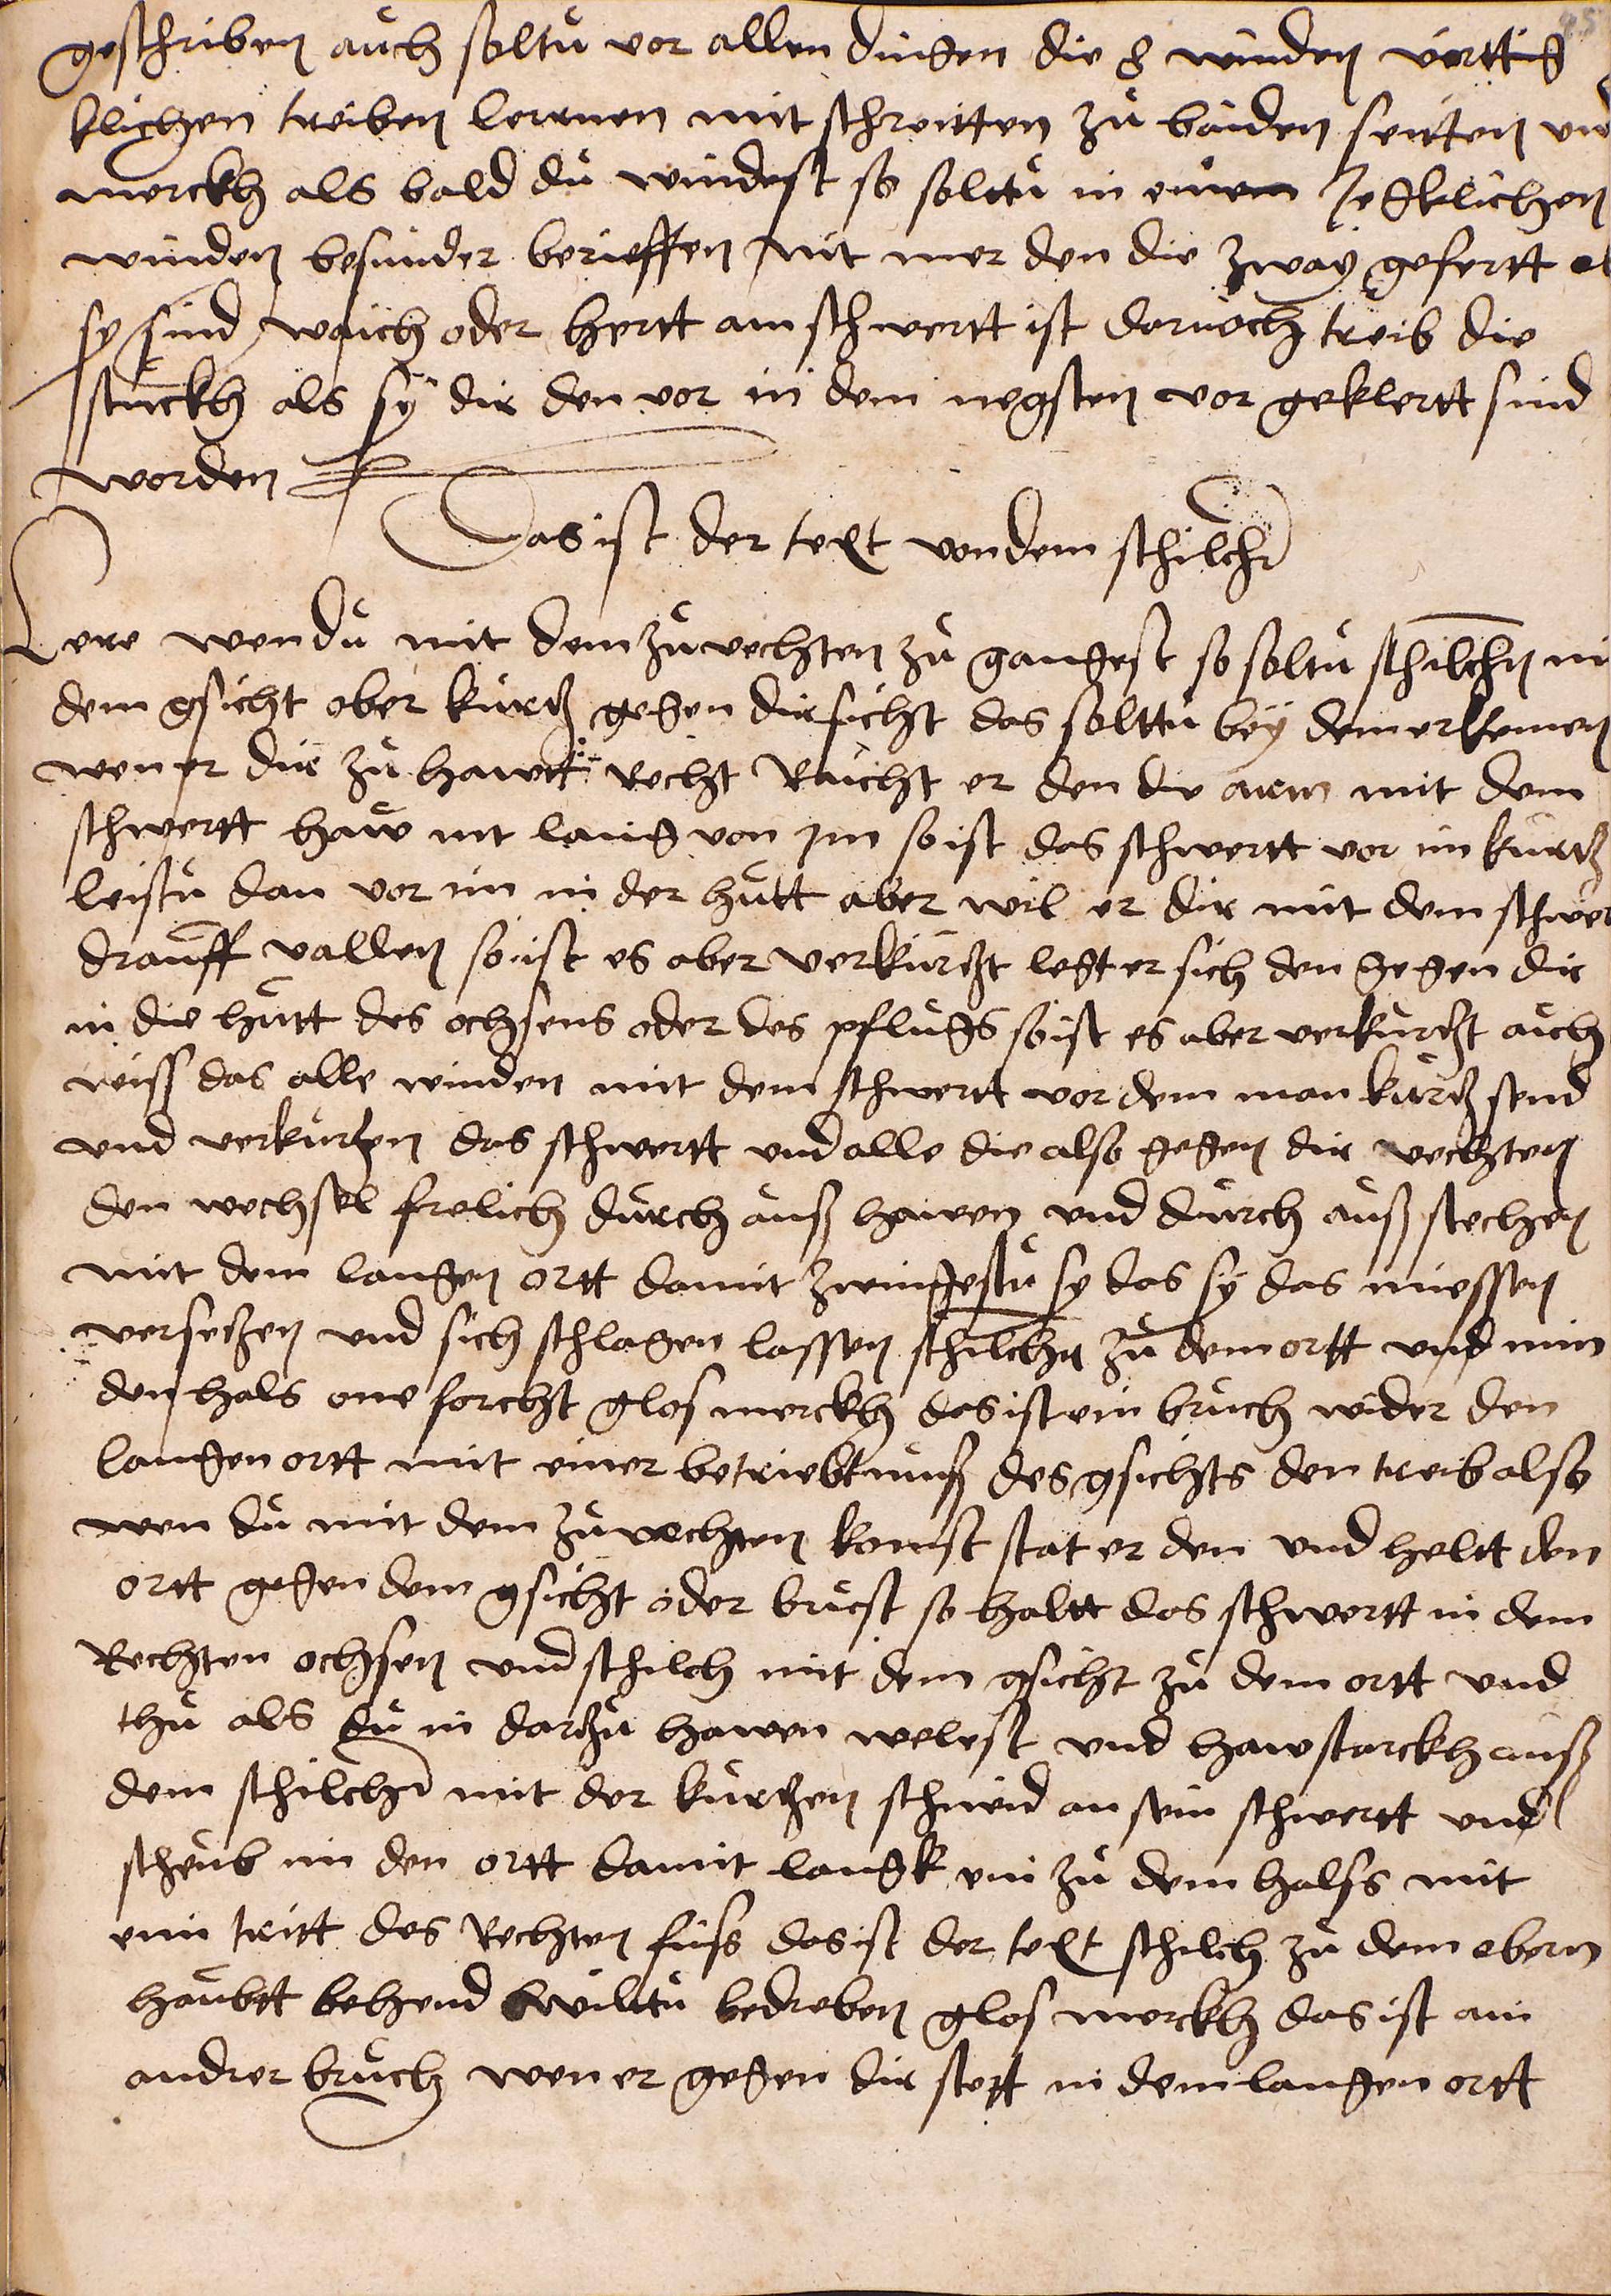 geschriben auch soltu vor allen dingen die 8 winden vorttig
klichen treiben lernnen mit schreitten zu baiden seitten vnd
merckh als bald du windest so solttu in einem Jegklichen
winden besunder berieffen nit mer den die zway gefertt ob
sy sind waich oder hertt am schwertt ist darnoch treib die
stuckh als sy dir den vor in dem negsten vor geklertt sind
worden
Das ist der text von dem schilchr
Lere wen du mit dem zuvechten zu gangest so soltu schilchn mi
dem gsicht ober kurtz gegen dir ficht das solttu bey dem erkenen
wen er dir zu hawtt Recht Raicht er den die arm mit dem
schwertt haw nit lang von im so ist das schwertt vor im kurtz
leistu dan vor im in der hutt aber wil er dir mit dem schwer
drauff vallen so ist es aber verkurtzt legt er sich den gegen dir
in die hutt des ochsens oder des pflugs so ist es aber verkurtzt auch
wiss das alle winden mit dem schwertt vor dem man kurtz send
vnd verkurtzen das schwertt vnd alle die also gegen dir vechten
den wechsel frelich durch auß hawen vnd durch auß stechen
mit dem langen ortt damit zwingestu sy das sy das miessen
versetzen vnd sich schlagen lassen schilchn zu dem ortt vnd nim
den hals one forcht glos merckh das ist ein bruch wider den
langen ortt mit einer betriebtnuß des gsichts den treib also
wen du mit dem zuvechten komst stat er den vnd heltt den
ortt gegen dem gsicht oder brust so haltt das schwertt in dem
Rechten ochsen vnd schilch mit dem gsicht zu dem ortt vnd
thu als du in dartzu hawen welest vnd haw starckh auß
dem schilchr mit der kurtzen schneid an sein schwertt vnd
scheub im den ortt damit langk ein zu dem halss mit
eim tritt des Rechten fuss das ist der text schilch zu dem obern
haubtt behend wilttu bedreben glos merckh das ist ain
andrer bruch wen er gegen dir stett in dem langen ortt